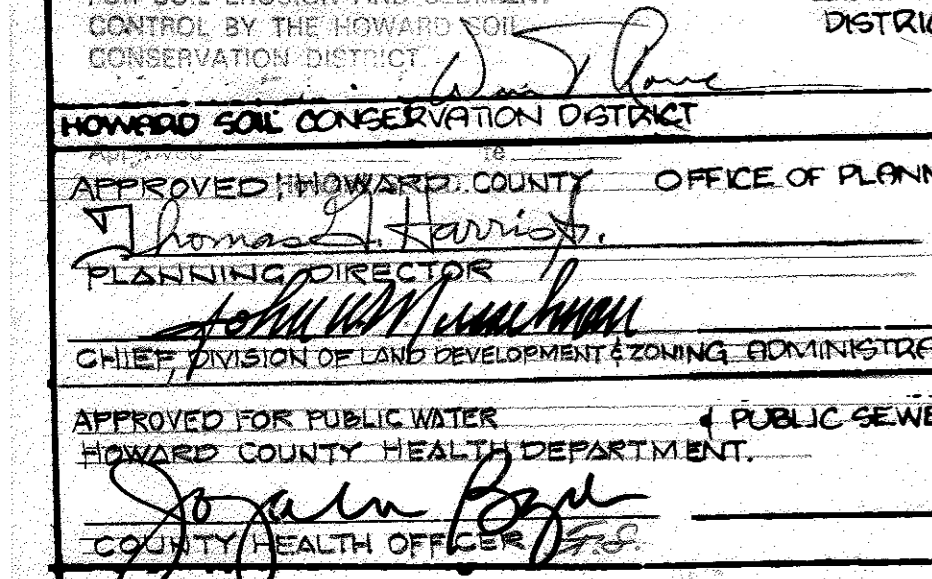 FOR SOIL EROSION AND SEDIMENT
CONTROL BY THE HOWARD SOIL
CONSERVATION DISTRICT.
DISTRIC
HOWARD SOIL CONSERVATION DISTRICT
Approved
APPROVED: HOWARD COUNTY OFFICE OF PLANN
Thomas G. Harris Jr.
PLANNING DIRECTOR
John W. Musselman
CHIEF, DIVISION OF LAND DEVELOPMENT & ZONING ADMINISTRA
APPROVED FOR PUBLIC WATER & PUBLIC SEWE
HOWARD COUNTY HEALTH DEPARTMENT.
COUNTY HEALTH OFFICER